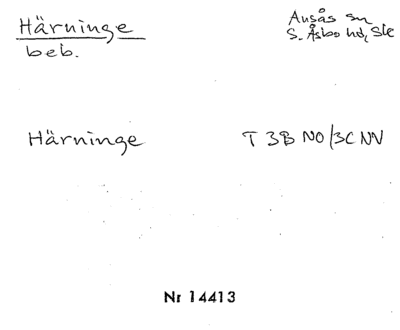 Härninge
beb.
Ausås sn
S. Åsbo hd, Sk
Härninge T 3B NO/3C NV
Nr 14413